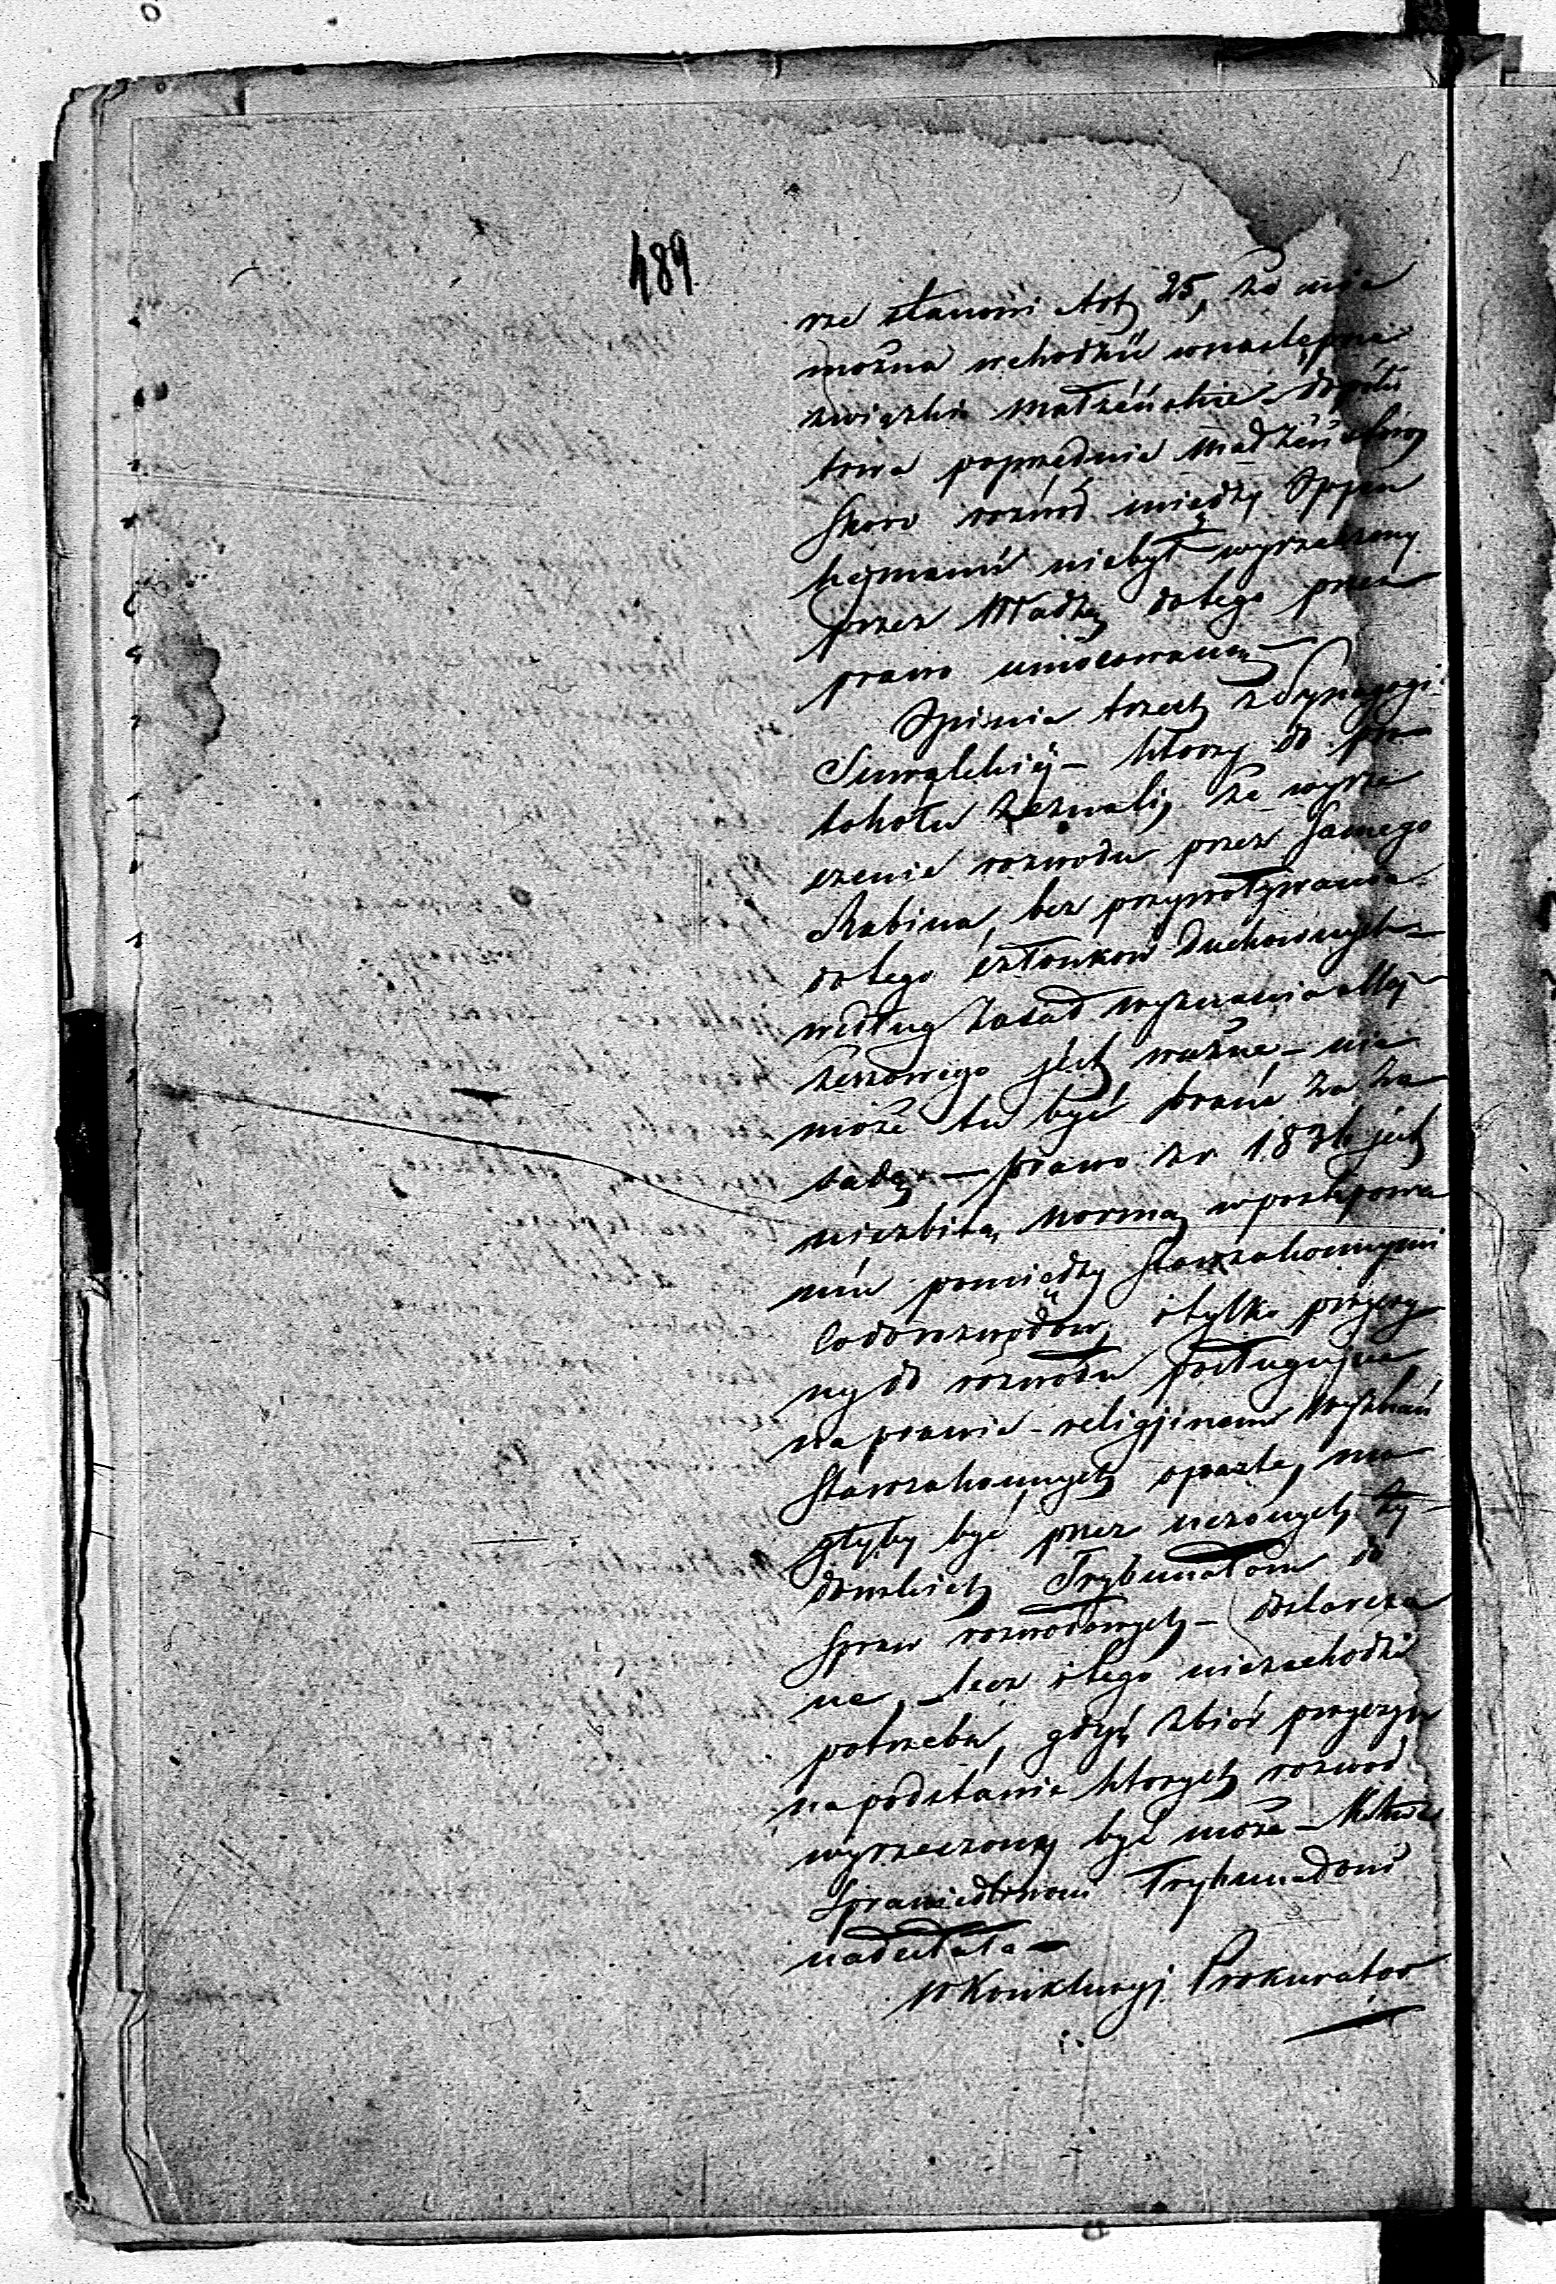 489
rze stanowi Art 25, że nie
można wchodzić w następne
związki małżeńskie dopóki
trwa poprzednie małżeństwo,
skoro rozwód między Oppen
hejmami niebył wyrzeczony
przez Władzę do tego przez
prawo umocowaną
Opinia trzech z Synagogi
Suwalskiéj – którzy do pro
tokołu zeznali, że wyrze
czenie rozwodu przez samego
Rabina, bez przywoływania
do tego członków duchownych –
według zasad wyznania Moj
żeszowego jest ważne – nie
może tu być brane za za
sadę – prawo z r 1836 jest
niezbitą normą w postępowa
niu pomiędzy Starozakonnymi
co do rozwodów, i tylko przyczy
ny do rozwodu posługujące
na prawie religijnem wyznań
Starozakonnych oparte, mo
głyby być przez uczonych ży
dowskich Trybunałom do
spraw rozwodowych – dostarcza
ne – lecz i tego niezachodzi
potrzeba, gdyż zbiór przyczyn
na podstawie których rozwód
wyrzeczony być może –
Sprawiedliwości Trybunałom
nadesłała –
w Konkluzyj Prokurator